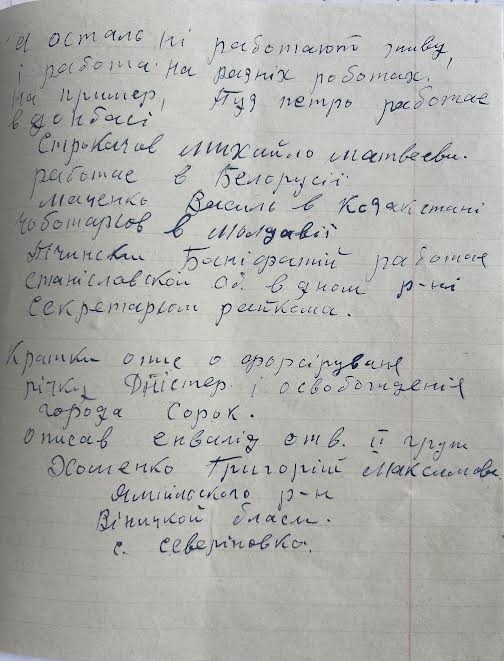 я осталь ні работают живу,
і работа на разніх роботах.
на пример, Пуз петро работае
в донбасі
Строкачов Михайло Матвееви.
работае в Белорусіі
Маченко Василь в Козакстані
Чоботарьов в Молдавіі
Ячински Баніфатій работае
станіславской об в дном р-ні
секретарьом райкома.
Кратки опис о форсіруване
річки Дністер і освобождения
города Сорок.
описав енвалід отв. II груп
Хоменко Григорій Максимови
Ямпільского р-н
Віничкой бласти.
с. Северіновка.